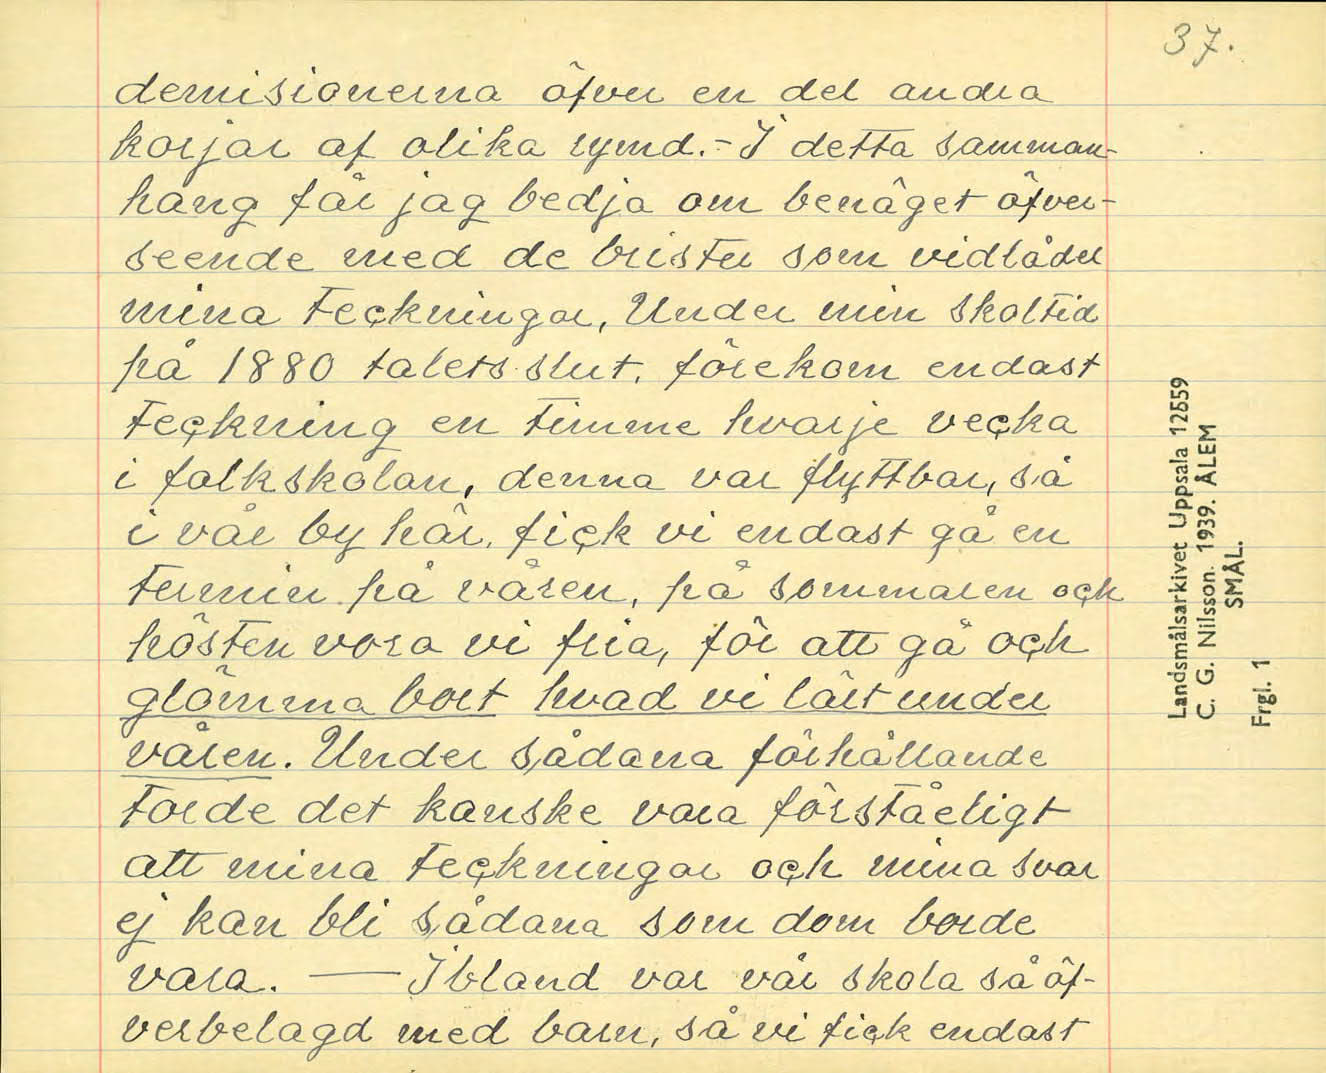 37.
demisionerna öfver en del andra
korjar af olika rymd.- I detta samman-
hang får jag bedja om benäget öfver-
seende med de brister som vidlåder
mina teckningar, Under min skoltid
på 1880 talets slut, förekom endast
teckning en timme hvarje vecka
i folkskolan, denna var flyttbar, så
i vår by här, fick vi endast gå en
termin på våren, på sommaren och
hösten vora vi fria, för att gå och
glömma bort hvad vi lärt under
våren. Under sådana förhållande
torde det kanske vara förståeligt
att mina teckningar och mina svar
ej kan bli sådana som dom borde
vara. — Ibland var vår skola så öf-
verbelagd med barn, så vi fick endast
Landsmålsarkivet Uppsala 12659
C. G. Nilsson. 1939. ÅLEM
SMÅL.
Frgl. 1